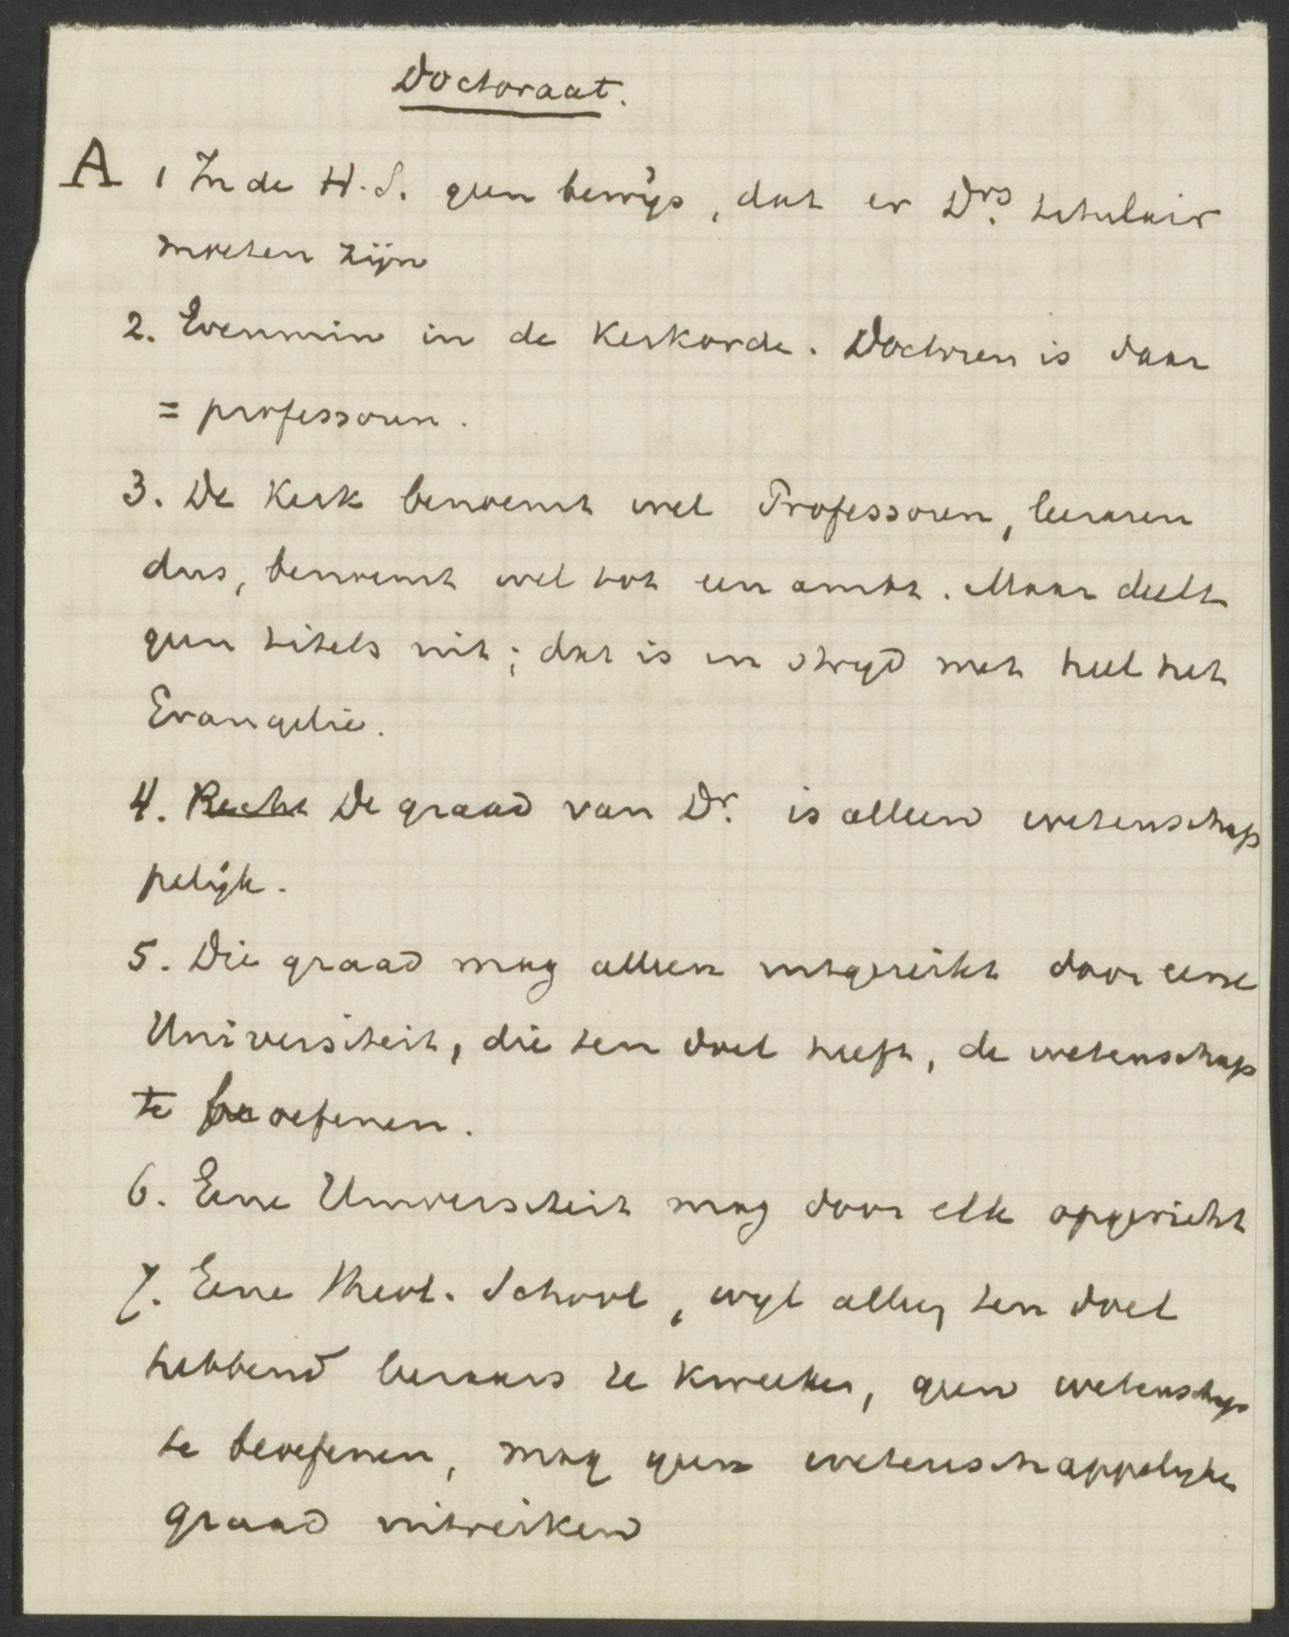 Doctoraat.
A 1 In de H.S. geen bewijs, dat er Drs. titulair
moeten zijn
2. Evenmin in de Kerkorde. Doctoren is daar
= professoren.
3. De Kerk benoemt wel Professoren, leeraren
dus, benoemt wel tot een ambt. Maar deelt
geen titels uit; dat is in strijd met heel het
Evangelie.
4. Recht De graad van Dr. is alleen wetenschap
pelijk.
5. Die graad mag alleen uitgereikt door eene
Universiteit, die ten doel heeft, de wetenschap
te beoefenen.
6. Eene Universiteit mag door elk opgericht
7. Eene Theol. School, wijl alleen ten doel
hebbend leeraars te kweeken, geen wetenschap
te beoefenen, mag geen wetenschappelijken
graad uitreiken